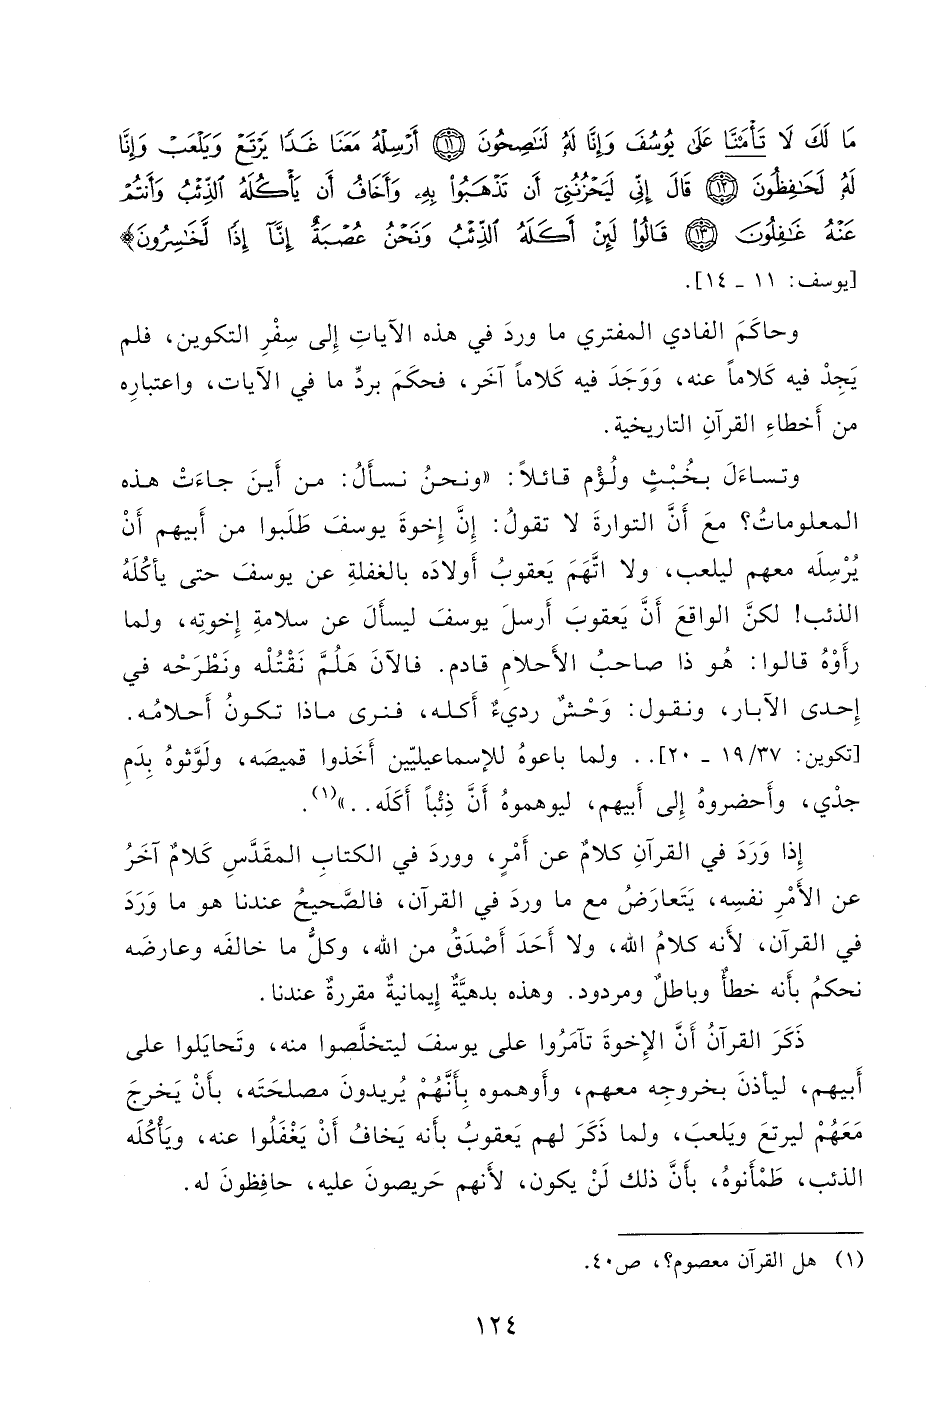 مَا لَكَ لَا تَأْمَنَّا عَلَى يُوسُفَ وَإِنَّا لَهُ لَنَاصِحُونَ ﴿١١﴾ أَرْسِلْهُ مَعَنَا غَدًا يَرْتَعْ وَيَلْعَبْ وَإِنَّا
لَهُ لَحَافِظُونَ ﴿١٢﴾ قَالَ إِنِّي لَيَحْزُنُنِي أَن تَذْهَبُوا بِهِ وَأَخَافُ أَن يَأْكُلَهُ الذِّئْبُ وَأَنتُمْ
عَنْهُ غَافِلُونَ ﴿١٣﴾ قَالُوا لَئِنْ أَكَلَهُ الذِّئْبُ وَنَحْنُ عُصْبَةٌ إِنَّا إِذًا لَّخَاسِرُونَ﴾
[يوسف: ١١ - ١٤].
وحاكَمَ الفادي المفتري ما وردَ في هذه الآياتِ إِلى سِفْرِ التكوين، فلم
يَجِدْ فيه كَلاماً عنه، وَوَجَدَ فيه كَلاماً آخَر، فحكَمَ بردِّ ما في الآيات، واعتبارِه
من أَخطاءِ القرآنِ التاريخية.
وتساءَلَ بخُبْثٍ ولُؤْمٍ قائلاً: «ونحنُ نسأَلُ: من أَينَ جاءَتْ هذه
المعلوماتُ؟ معَ أَنَّ التوارةَ لا تقولُ: إِنَّ إِخوةَ يوسفَ طَلَبوا من أَبيهم أَنْ
يُرْسِلَه معهم ليلعب، ولا اتَّهَمَ يَعقوبُ أَولادَه بالغفلةِ عن يوسفَ حتى يأكُلَهُ
الذئب! لكنَّ الواقعَ أَنَّ يَعقوبَ أَرسلَ يوسفَ ليسأَلَ عن سلامةِ إِخوتِه، ولما
رأَوْهُ قالوا: هُو ذا صاحبُ الأَحلامِ قادم. فالآنَ هَلُمَّ نَقْتُلْه ونَطْرَحْه في
إِحدى الآبار، ونقول: وَحْشٌ رديءٌ أَكله، فنرى ماذا تكونُ أَحلامُه.
[تكوين: ١٩/٣٧ - ٢٠].. ولما باعوهُ للإسماعيليّين أَخَذوا قميصَه، ولَوَّثوهُ بِدَمِ
جدْي، وأَحضروهُ إِلى أَبيهم، ليوهموهُ أَنَّ ذِئْباً أَكَلَه..»(١).
إِذا وَرَدَ في القرآنِ كلامٌ عن أَمْرٍ، ووردَ في الكتابِ المقدَّسِ كَلامٌ آخَرُ
عن الأَمْرِ نفسِه، يَتَعارَضُ مع ما وردَ في القرآن، فالصَّحيحُ عندنا هو ما وَرَدَ
في القرآن، لأنه كلامُ الله، ولا أَحَدَ أَصْدَقُ من الله، وكلُّ ما خالفَه وعارضَه
نحكمُ بأَنه خطأٌ وباطلٌ ومردود. وهذه بدهيَّةٌ إِيمانيةٌ مقررةٌ عندنا.
ذَكَرَ القرآنُ أَنَّ الإِخوةَ تآمَرُوا على يوسفَ ليتخلَّصوا منه، وتَحايَلوا على
أَبيهم، ليأذنَ بخروجِه معهم، وأَوهموه بِأَنَّهُمْ يُريدونَ مصلحَتَه، بأَنْ يَخرجَ
مَعَهُمْ ليرتعَ ويَلعبَ، ولما ذَكَرَ لهم يَعقوبُ بأنه يَخافُ أَنْ يَغْفَلُوا عنه، ويَأْكُلَه
الذئب، طَمْأَنوهُ، بأَنَّ ذلك لَنْ يكون، لأنهم حَريصونَ عليه، حافِظونَ له.
(١) هل القرآن معصوم؟، ص٤٠.
١٢٤